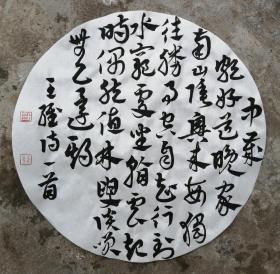 中歲
頗好道晚家
南山陲興來每獨
往勝事空自知行到
水窮處坐看雲起
時偶然值林叟談笑
無還期
王維詩一首